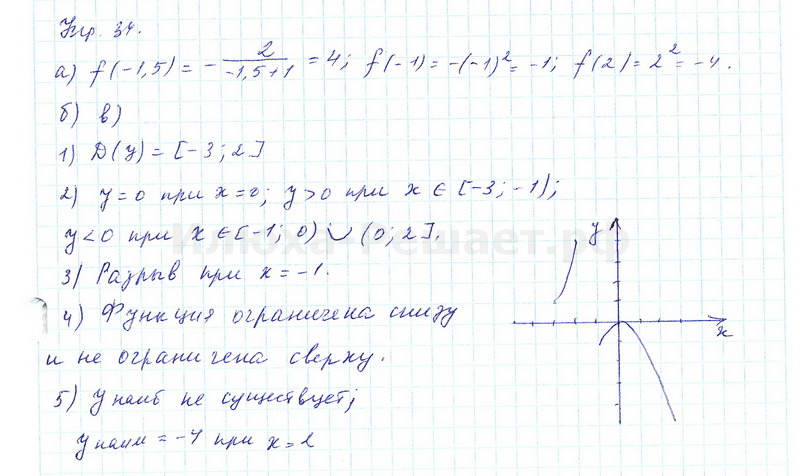 Упр. 34.
а) f(-1,5) = - 2/(-1,5+1) = 4; f(-1) = -(-1)² = -1; f(2) = 2² = -4.
б) в)
1) D(y) = [-3; 2]
2) y=0 при x=0; y>0 при x ∈ [-3; -1);
y<0 при x ∈ [-1; 0) ∪ (0; 2].
3) Разрыв при x = -1.
4) Функция ограничена снизу
и не ограничена сверху.
5) y наиб не существует;
y наим = -4 при x = 2
y
x
Илюха-Решает.рф